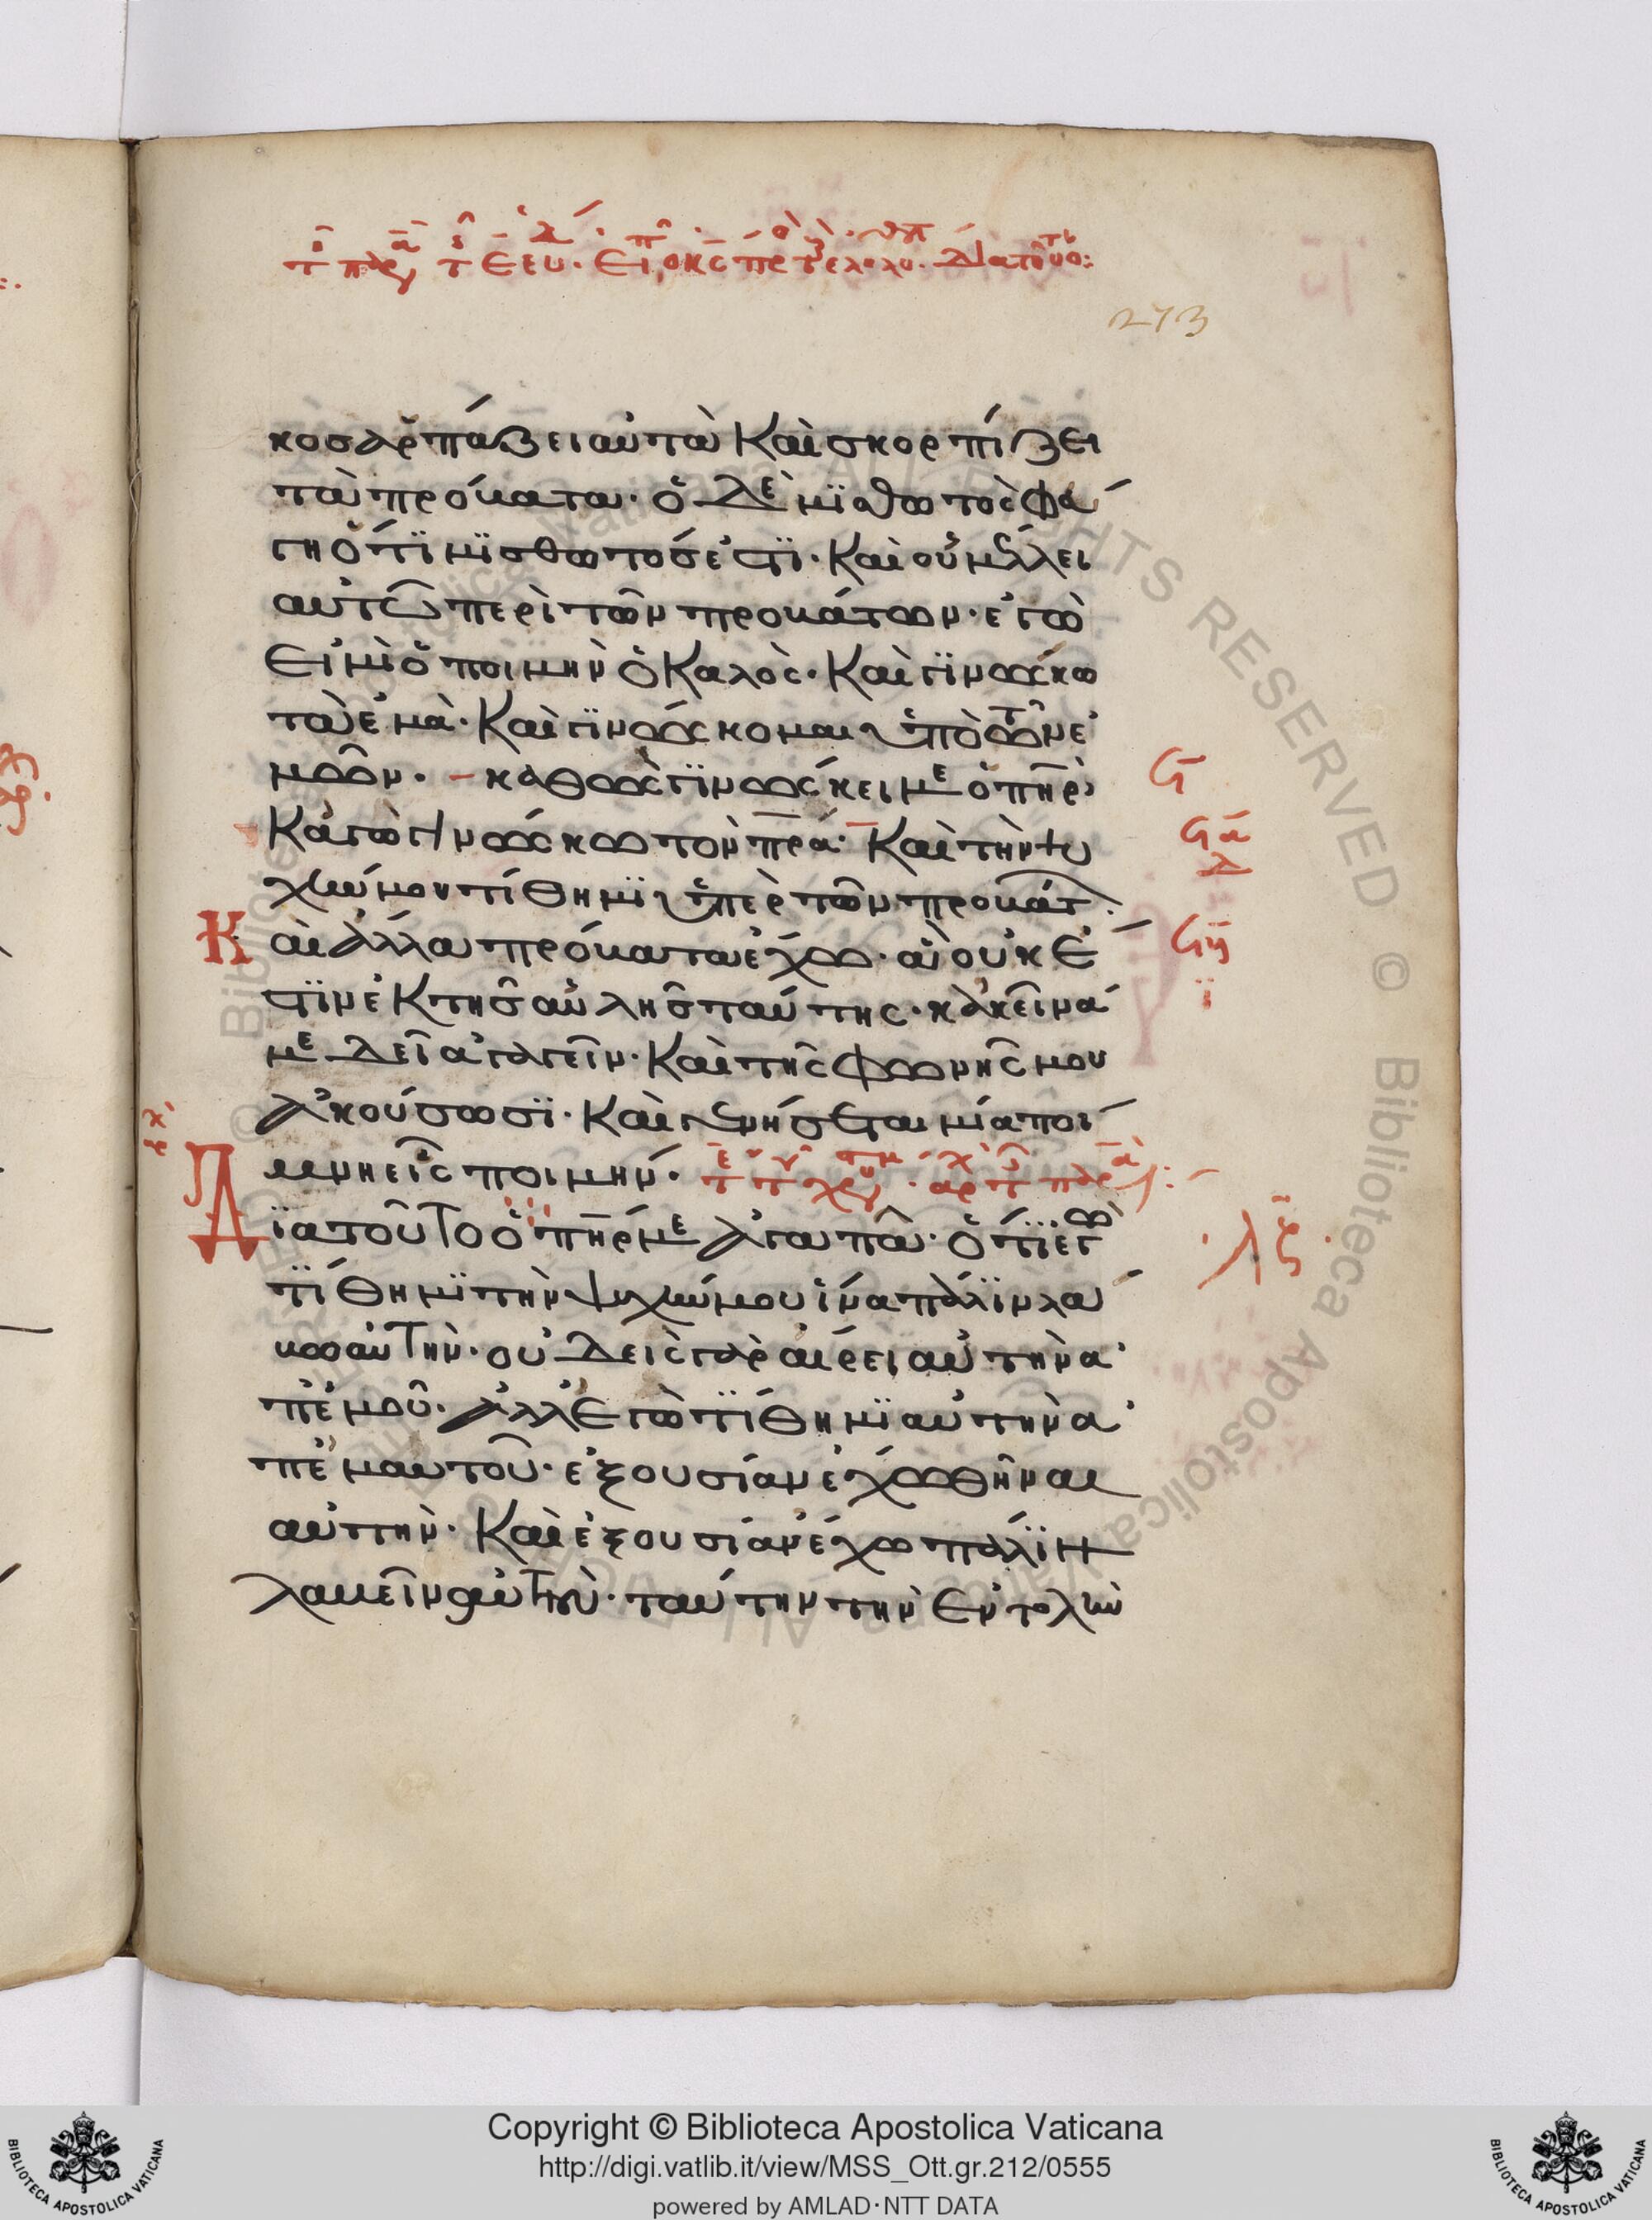 273
κοσ ἁρπάζει αὐτὰ Καὶ σκορπίζει
τὰ πρόβατα· ὁ δὲ μϊσθωτὸς φεύ
γει ὅτϊ μϊσθωτόσ ἐστϊ· Καὶ οὐ μέλλει
αὐτῶ περὶ τῶν προβάτων· ἐγὼ
εἰμὶ ὁ ποιμὴν ὁ Καλὸς· Καὶ γϊνώσκω
τὰ ἐμὰ· Καὶ γϊνώσκομαι ὑπὸ τῶν ἐ
μῶν· καθὼς γϊνώσκει με ὁ πη̅ρ
Κἀγὼ γϊνώσκω τὸν πρ̅α· Καὶ τὴν ψυ
χήν μου τίθημϊ ὑπὲρ τῶν προβάτ·
Καὶ ἄλλα πρόβατα ἔχω· ἃ οὐκ ἔ
στϊν ἐκ τῆσ αὐλῆσ ταύτης· κἀκεῖνά
με δεῖ ἀγαγεῖν· Καὶ τῆς φωνῆς μου
ἀκούσωσϊ· Καὶ γενήσεται μία ποί
μνη εἷς ποιμήν·
Δϊατοῦτο ὁ πη̅ρ με ἀγαπᾶ· ὅτϊ ἐγὼ
τίθημϊ τὴν ψυχήν μου ἵνα πάλϊν λά
βω αὐτὴν· οὐδεὶς γὰρ αἴρει αὐτὴν ἀ
π' ἐμοῦ· ἀλλ' ἐγὼ τίθημϊ αὐτὴν ἀ
π' ἐμαυτοῦ· ἐξουσίαν ἔχω θῆναι
αὐτὴν· Καὶ ἐξουσίαν ἔχω πάλϊν
λαβεῖν αὐτὴν· ταύτην τὴν ἐντολὴν
Copyright © Biblioteca Apostolica Vaticana
http://digi.vatlib.it/view/MSS_Ott.gr.212/0555
powered by AMLAD·NTT DATA